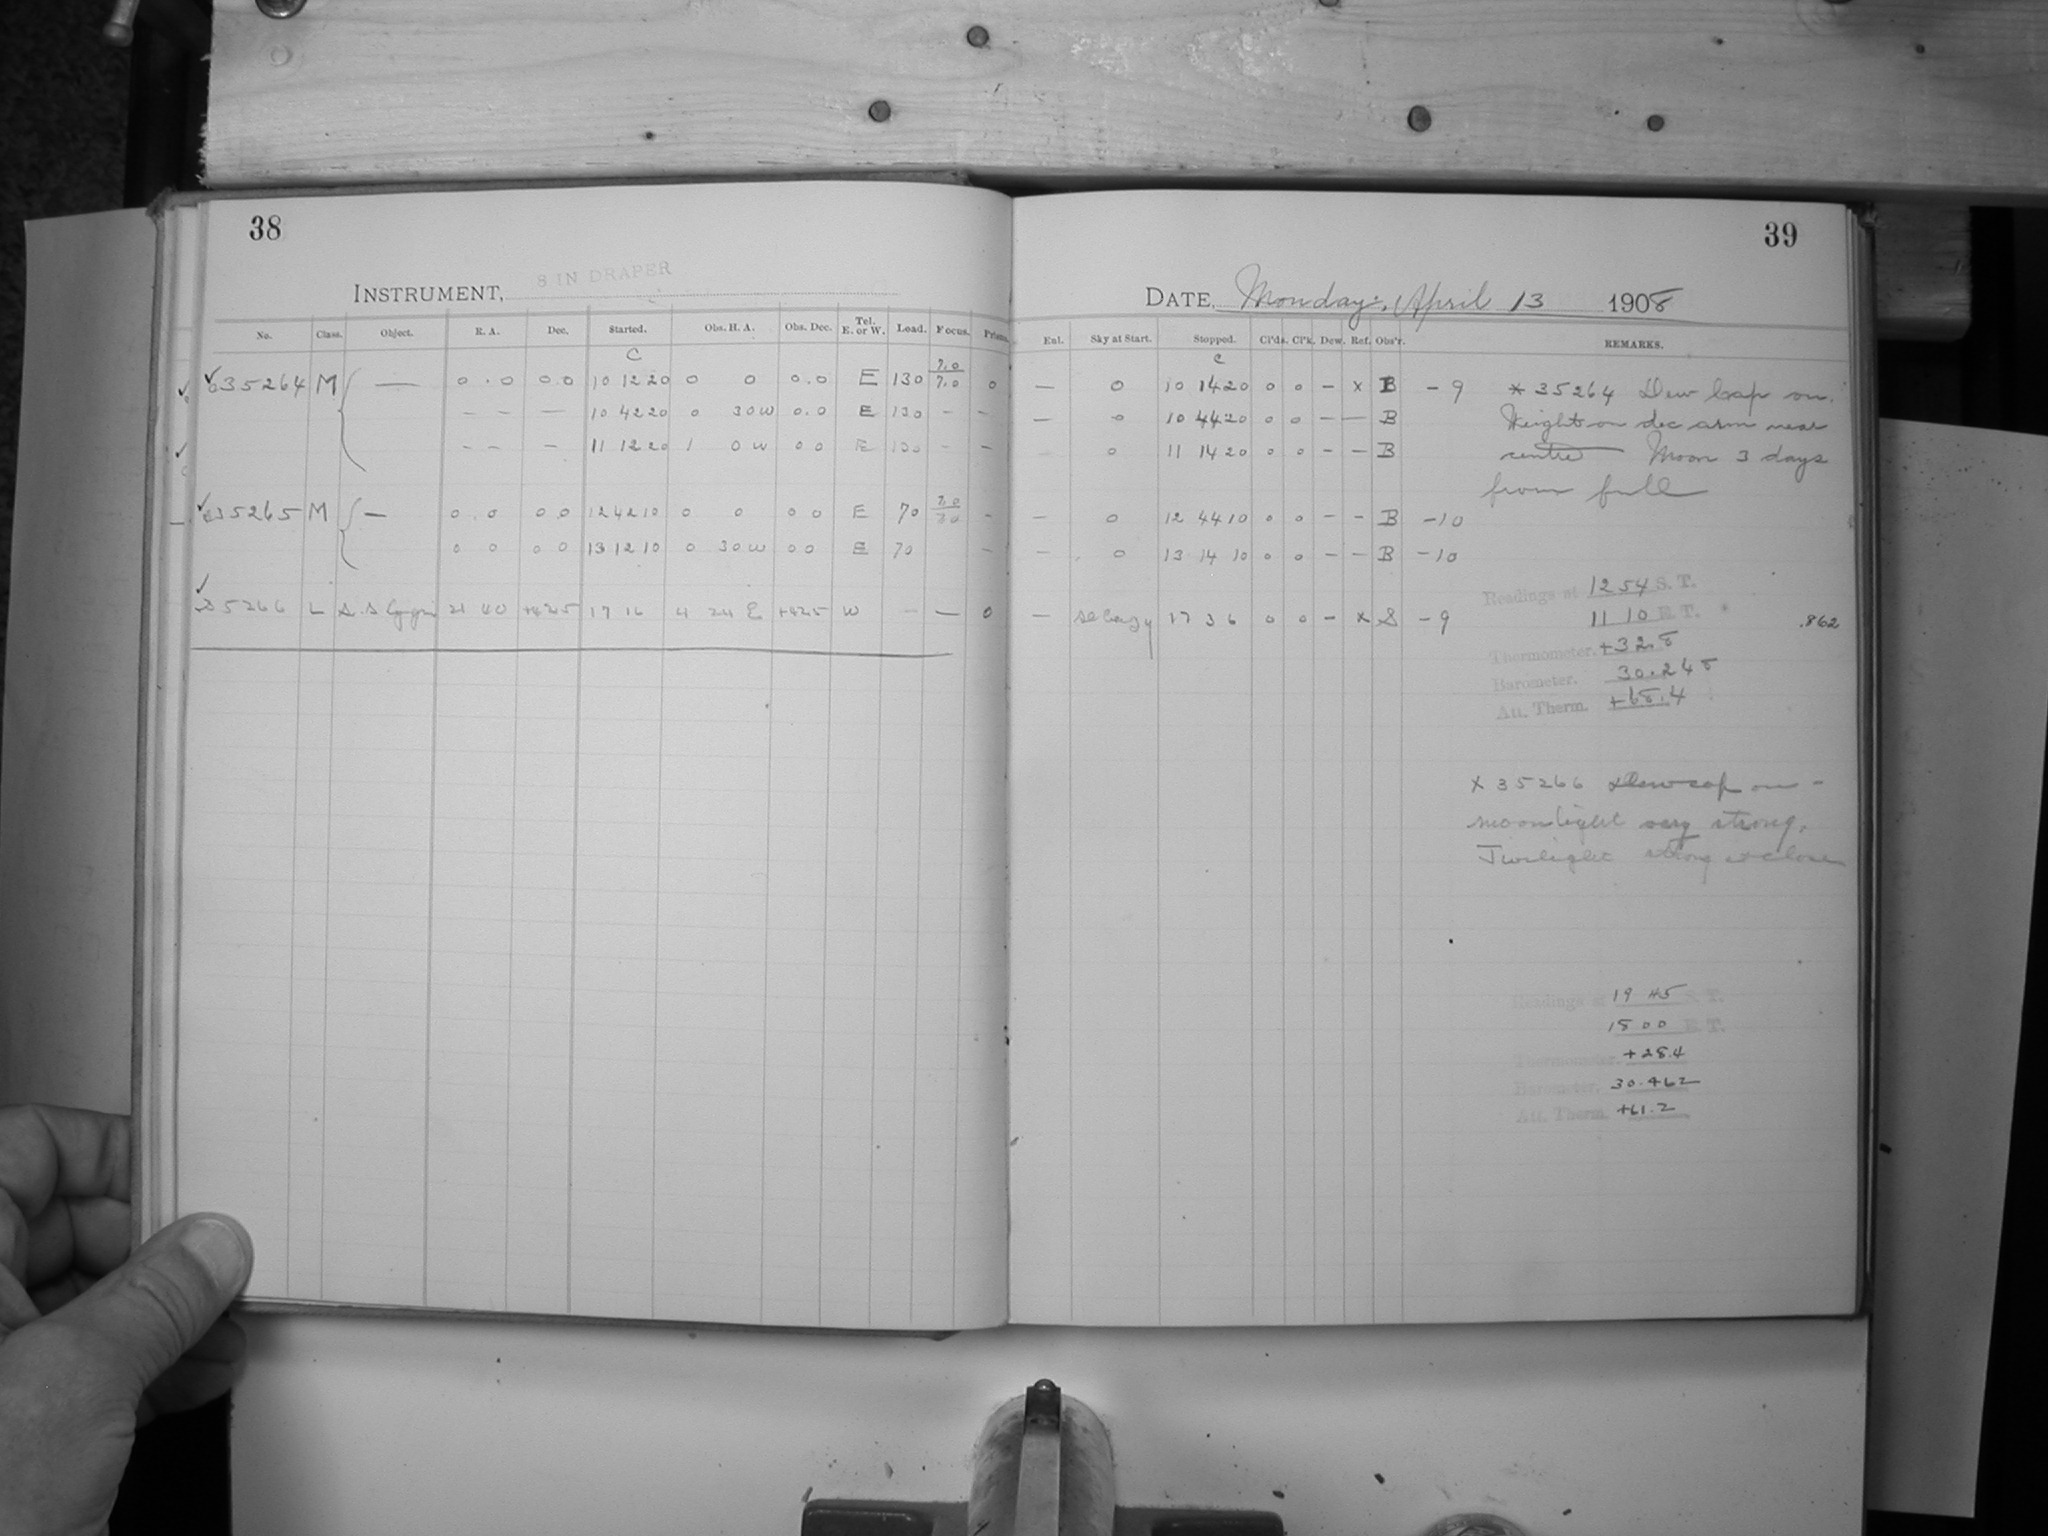 38
INSTRUMENT, 8 IN DRAPER
No. Class. Object. R. A. Dec. Started. Obs. H. A. Obs. Dec. Tel. E. or W. Load. Focus. Prisms.
C
35264 M { — 0 . 0 0.0 10 12 20 0 0 0.0 E 130 7.0 7.0 0
— — — 10 42 20 0 30 W 0.0 E 130 — —
— — — 11 12 20 1 0 W 0 0 E 130 — —
35265 M { — 0 . 0 0 0 12 42 10 0 0 0 0 E 70 —
0 0 0 0 13 12 10 0 30 W 0 0 E 70 —
35266 L 21 40 +42.5 17 16 4 24 E +42.5 W — — 0
39
DATE, Monday, April 13 1908
Enl. Sky at Start. Stopped. Cl'ds. Cl'k. Dew. Ref. Obs'r. REMARKS.
C
— 0 10 14 20 0 0 — x B — 9
— 0 10 44 20 0 0 — — B
0 11 14 20 0 0 — — B
— 0 12 44 10 0 0 — — B —10
— 0 13 14 10 0 0 — — B —10
— 17 36 0 0 — x S — 9
* 35264 Dew Cap on.
Weight on dec arm near
centre Moon 3 days
from full
Readings at 12 54 S. T.
11 10 E. T.
.862
Thermometer. +32.8
Barometer. 30.248
Att. Therm. +68.4
x 35266 Dewcap on —
moonlight very strong.
Twilight strong at close
Readings at 19 45 S. T.
18 00 E. T.
Thermometer. +28.4
Barometer. 30.462
Att. Therm. +61.2